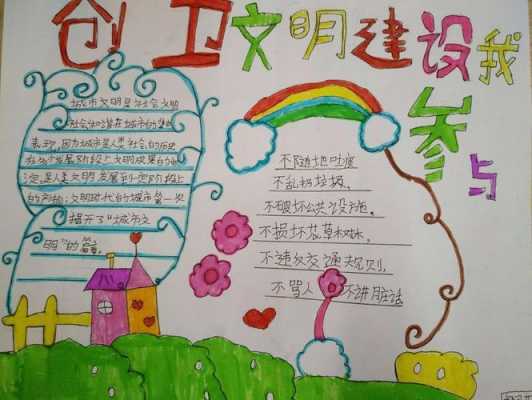 创卫文明建设我参与
城市文明是社会文明
社会和潜在城市的集中
表现,因为城市是人类社会的历史
在各个发展阶段上文明成果的
是人类文明发展到一定阶段上
的产物;文明时代的城市第一次
揭开了“城市文
明”的篇章
不随地吐痰
不乱扔垃圾、
不破坏公共设施。
不损坏花草树木,
不违反交通规则,
不骂人 不讲脏话